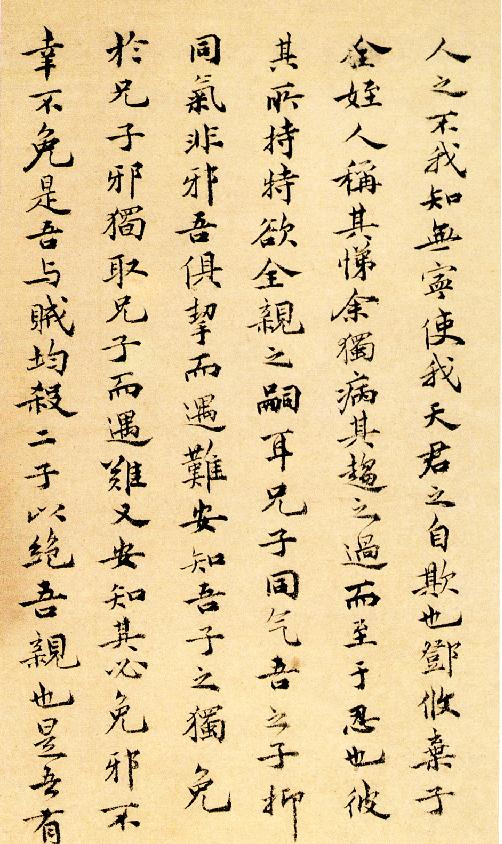 人之不我知無寧使我天君之自欺也鄧攸棄子
全姪人稱其悌余獨病其趨之過而至于忍也彼
其所持特欲全親之嗣耳兄子同气吾之子抑
同氣非邪吾俱挈而遇難安知吾子之獨免
於兄子邪獨取兄子而遇難又安知其必免邪不
幸不免是吾与賊均殺二子以絕吾親也是吾有